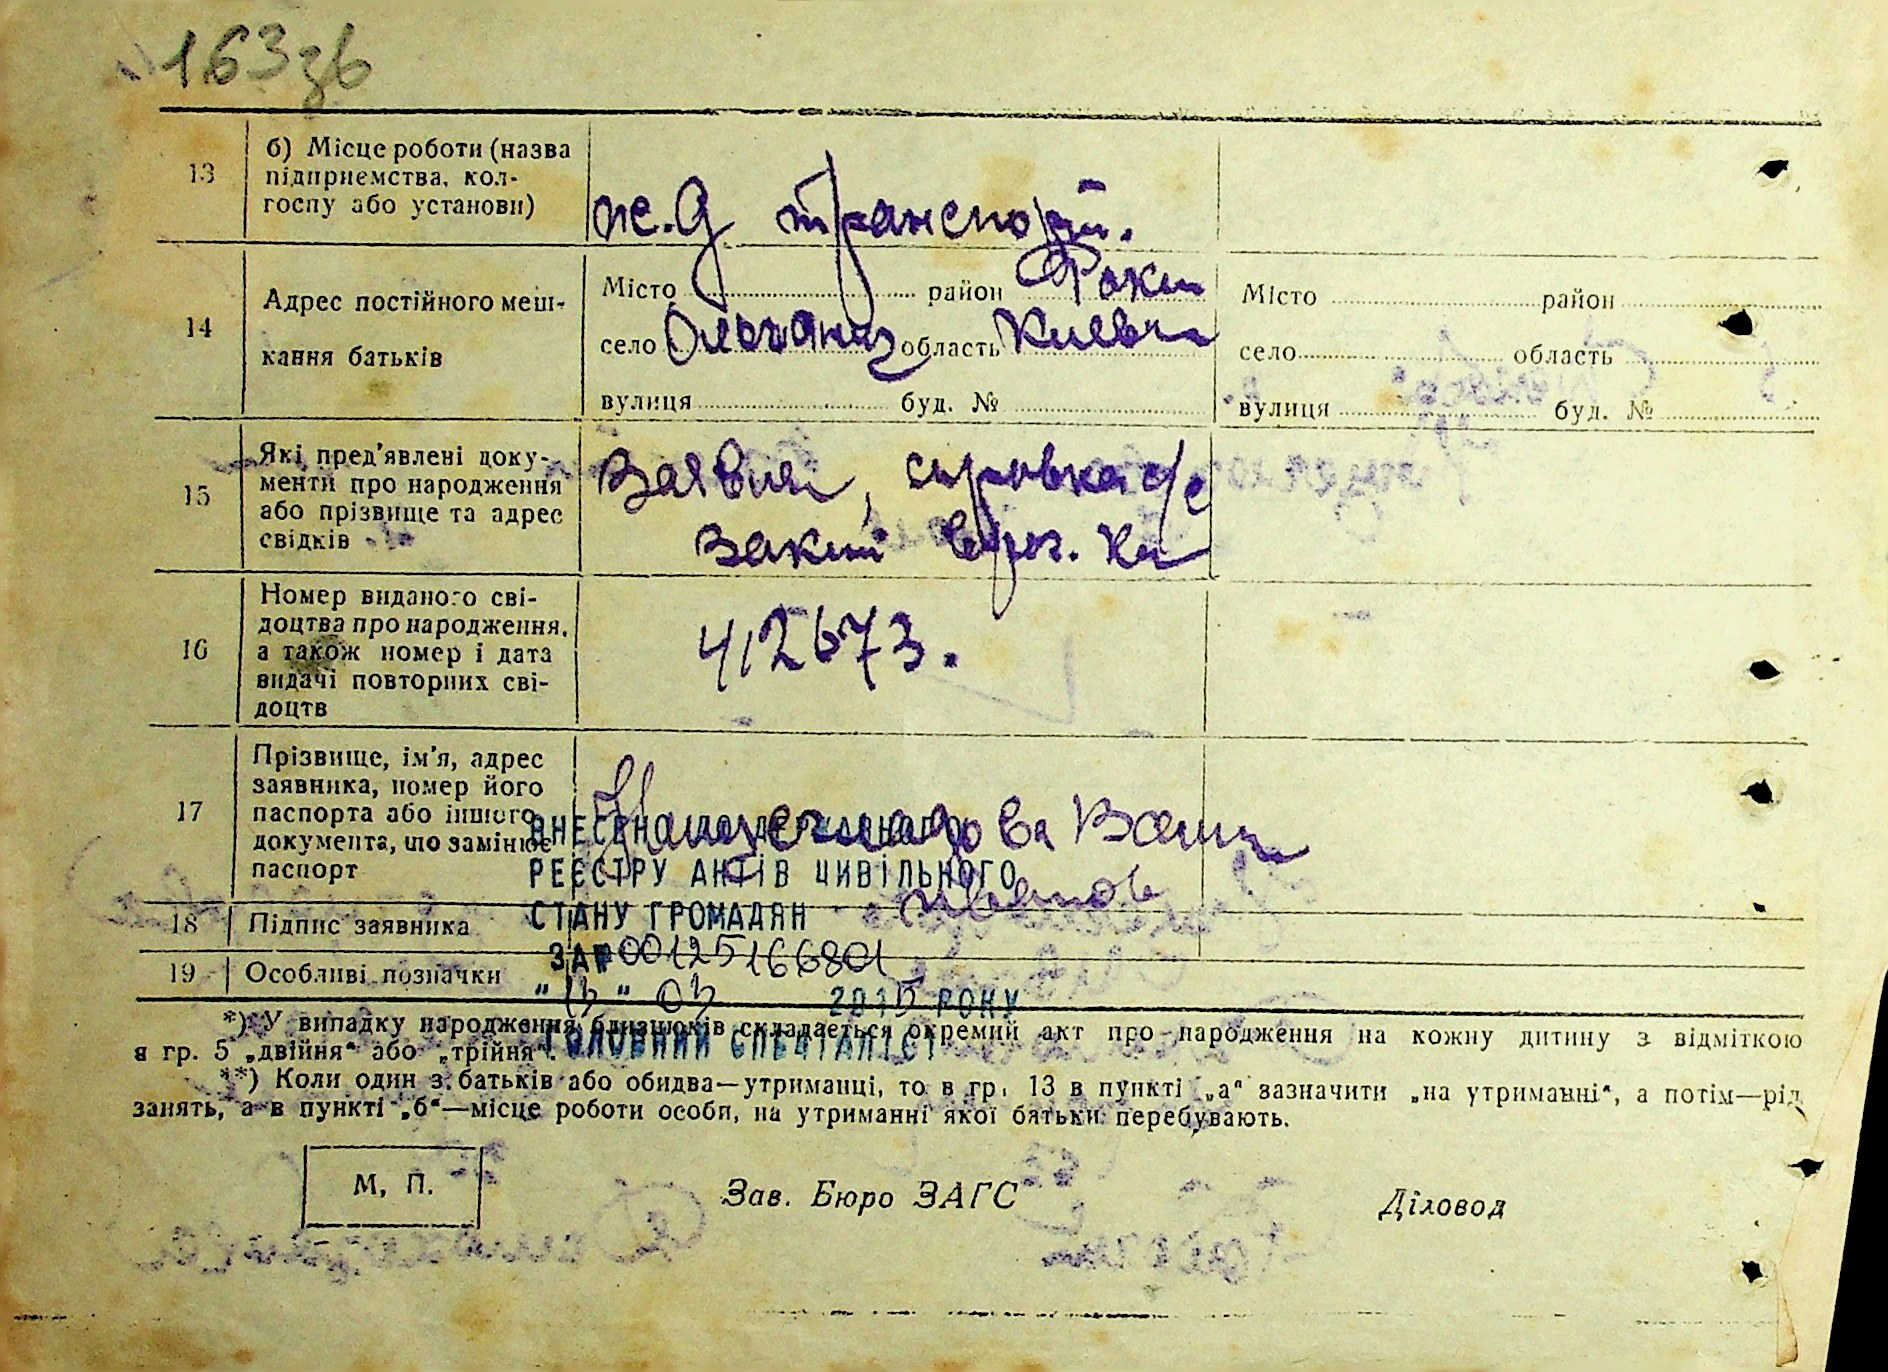 163зв
13
б) Місце роботи (назва
підприємства, кол-
госпу або установи)
ж.д транспорт.
14
Адрес постійного меш-
кання батьків
Місто район Ракит
село область Киевск
вулиця буд. №
Місто район
село область
вулиця буд. №
15
Які пред'явлені доку-
менти про народження
або прізвище та адрес
свідків
справка
16
Номер виданого сві-
доцтва про народження,
а також номер і дата
видачі повторних сві-
доцтв
412673.
17
Прізвище, ім'я, адрес
заявника, номер його
паспорта або іншого
документа, що замінює
паспорт
ВНЕСЕНО ДО ДЕРЖАВНОГО
РЕЄСТРУ АКТІВ ЦИВІЛЬНОГО
СТАНУ ГРОМАДЯН
ЗА № 00125166801
"13" 03 2015 РОКУ
ГОЛОВНИЙ СПЕЦІАЛІСТ
18
Підпис заявника
19
Особливі позначки
*) У випадку народження близнюків складається окремий акт про народження на кожну дитину з відміткою
в гр. 5 „двійня“ або „трійня“.
**) Коли один з батьків або обидва—утриманці, то в гр. 13 в пункті „а“ зазначити „на утриманні“, а потім—рід
занять, а в пункті „б“—місце роботи особи, на утриманні якої батьки перебувають.
М. П.
Зав. Бюро ЗАГС
Діловод